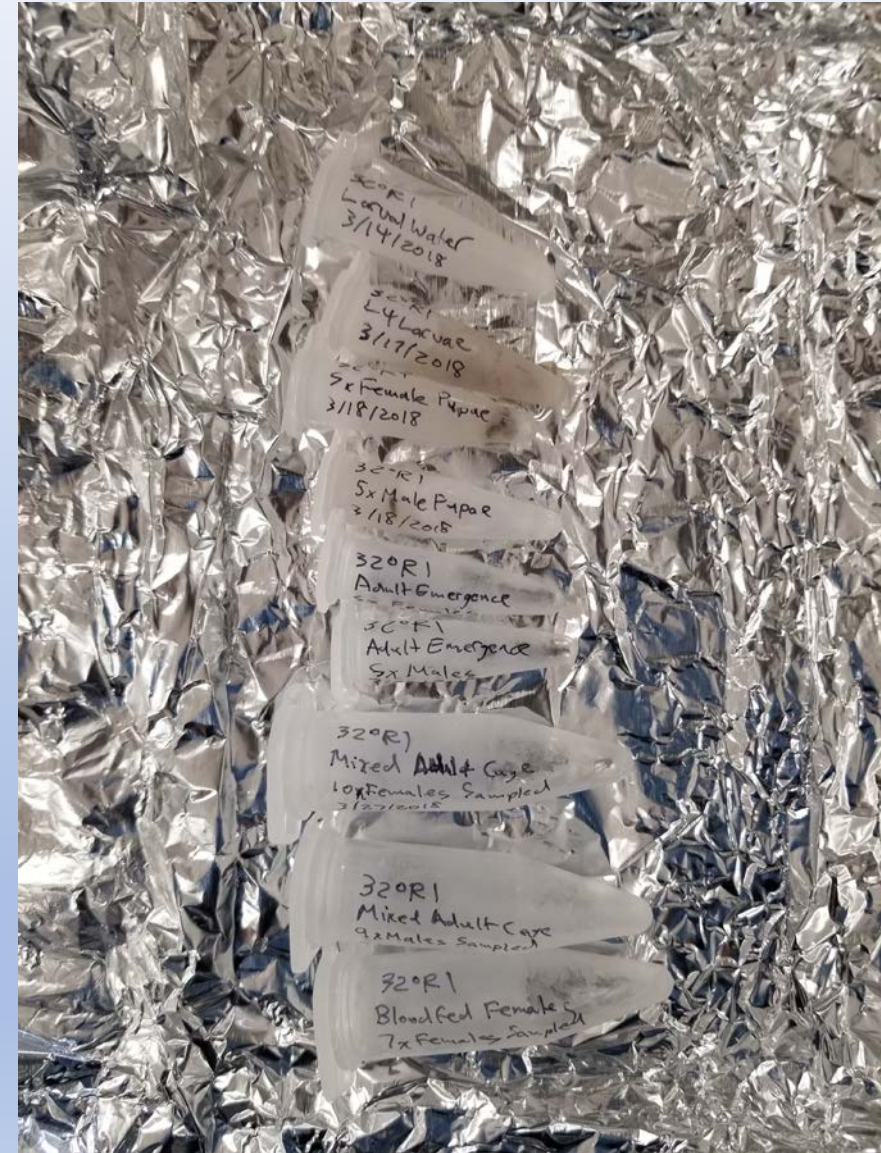 32°R1
Larval Water
3/14/2018
32°R1
L4 Larvae
3/17/2018
5x Female Pupae
3/18/2018
32°R1
5x Male Pupae
3/18/2018
32°R1
Adult Emergence
5x Females
32°R1
Adult Emergence
5x Males
32°R1
Mixed Adult Cage
10xFemales Sampled
3/27/2018
32°R1
Mixed Adult Cage
9xMales Sampled
32°R1
Bloodfed Females
7xFemales Sampled